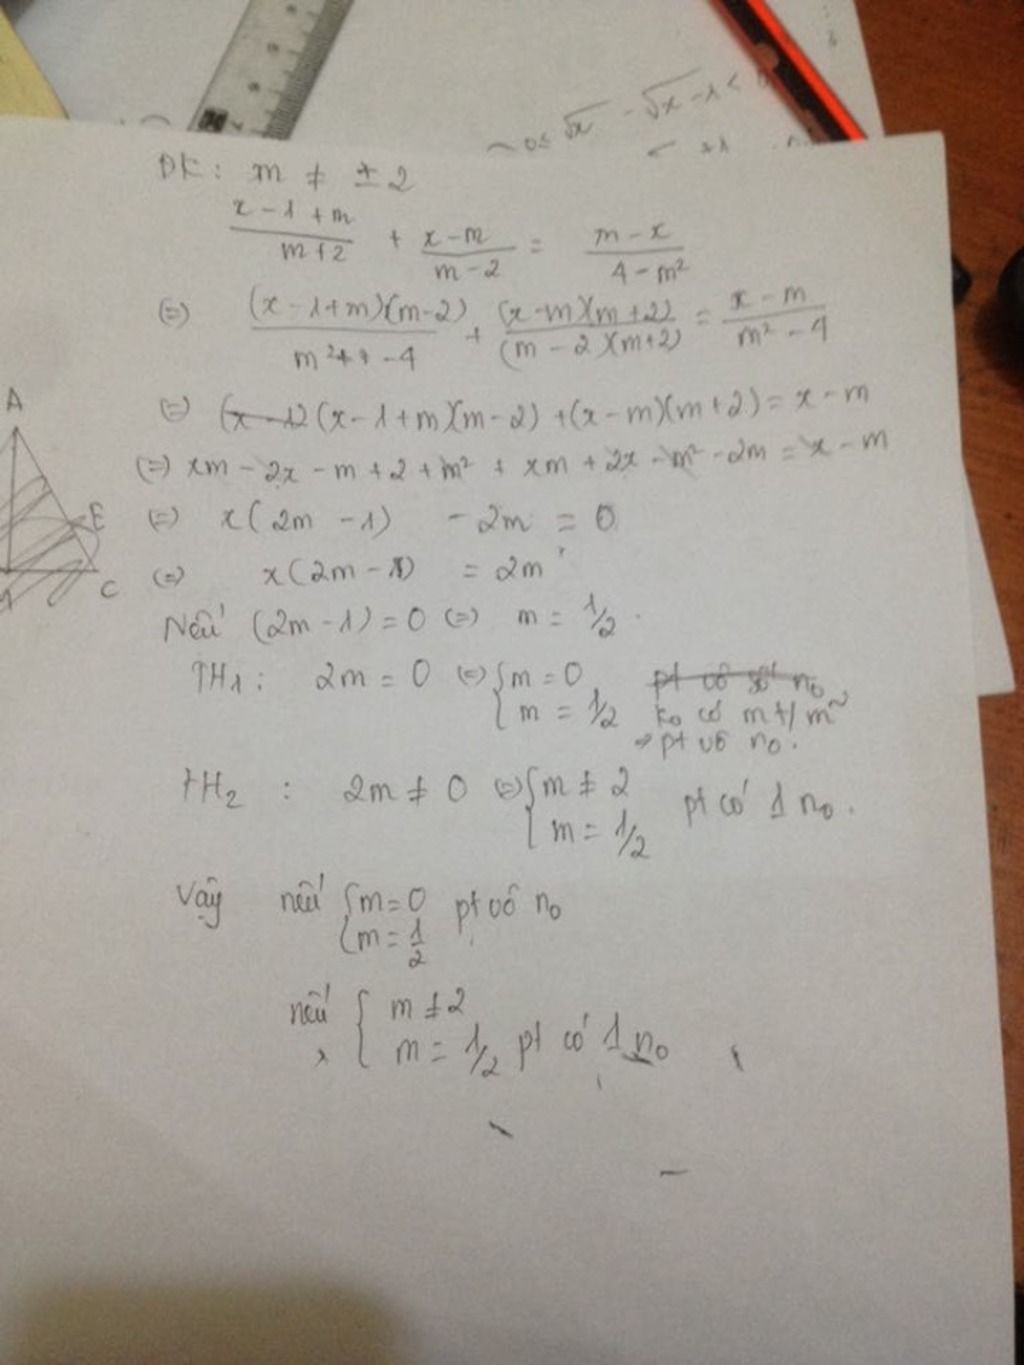 √x - √x - 1 <
ĐK : m ≠ ± 2
(x - 1 + m)/(m + 2) + (x - m)/(m - 2) = (m - x)/(4 - m²)
(=) ((x - 1 + m)(m - 2))/(m² - 4) + ((x - m)(m + 2))/((m - 2)(m + 2)) = (x - m)/(m² - 4)
(=) (x - 1 + m)(m - 2) + (x - m)(m + 2) = x - m
(=) xm - 2x - m + 2 + m² + xm + 2x - m² - 2m = x - m
(=) x(2m - 1) - 2m = 0
(=) x(2m - 1) = 2m
Nếu (2m - 1) = 0 (=) m = 1/2 .
TH1 : 2m = 0 (=) { m = 0 pt có số no
m = 1/2 ko có m t/m
→ pt vô no .
TH2 : 2m ≠ 0 (=) { m ≠ 2 pt có 1 no .
m = 1/2
Vậy nếu { m = 0 pt vô no
m = 1/2
nếu { m ≠ 2
m = 1/2 pt có 1 no
A
E
C